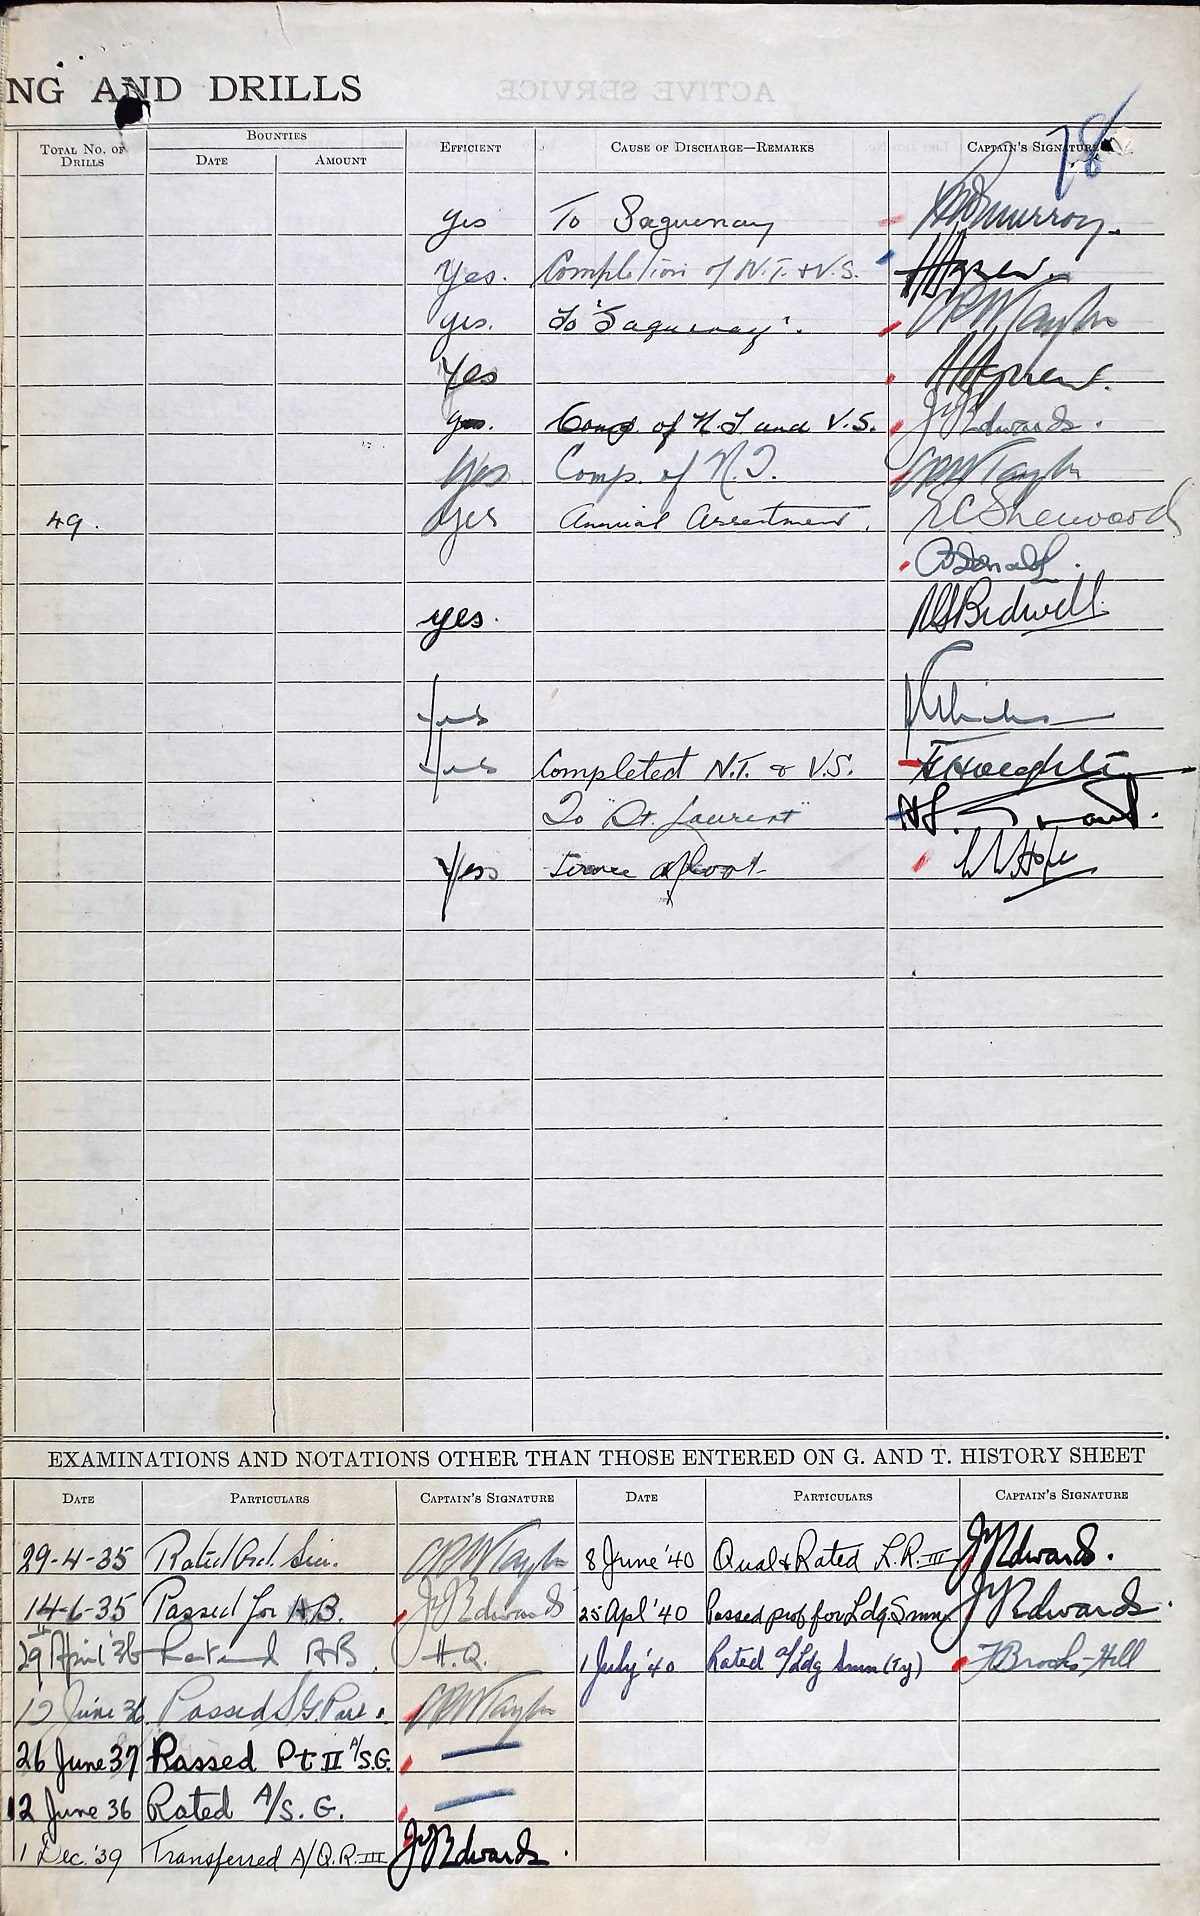 NG AND DRILLS
ACTIVE SERVICE
78
TOTAL No. OF DRILLS
BOUNTIES
DATE AMOUNT
EFFICIENT
CAUSE OF DISCHARGE—REMARKS
CAPTAIN'S SIGNATURE
yes To Saguenay
Yes. Completion of N.T. & V.S. Agnew.
yes. To "Saguenay". Taylor
Yes Agnew.
yes. Comp. of N.T and V.S. Edwards.
Yes Comp. of N.T. Taylor
49. Yes Annual Assessment. Sherwood
Donald.
yes. Bidwell
yes
yes Completed N.T. & V.S. Houghton
To "St. Laurent" Grant.
Yes afloat Hope
EXAMINATIONS AND NOTATIONS OTHER THAN THOSE ENTERED ON G. AND T. HISTORY SHEET
DATE PARTICULARS CAPTAIN'S SIGNATURE DATE PARTICULARS CAPTAIN'S SIGNATURE
29-4-35 Rated Ord. Sea. Taylor 8 June '40 Qual & Rated L.R. III Edwards.
14-6-35 Passed for A.B. Edwards 25 Apl '40 Passed prof for Ldg. Smn. Edwards.
29 April '36 Rated AB. H.Q. 1 July '40 Rated A/Ldg Smn (Ty) F Brock-Hill
12 June 36 Passed S.G. Part Taylor
26 June 37 Passed Pt II A/S.G.
12 June 36 Rated A/S.G.
1 Dec. '39 Transferred A/Q.R. III Edwards.